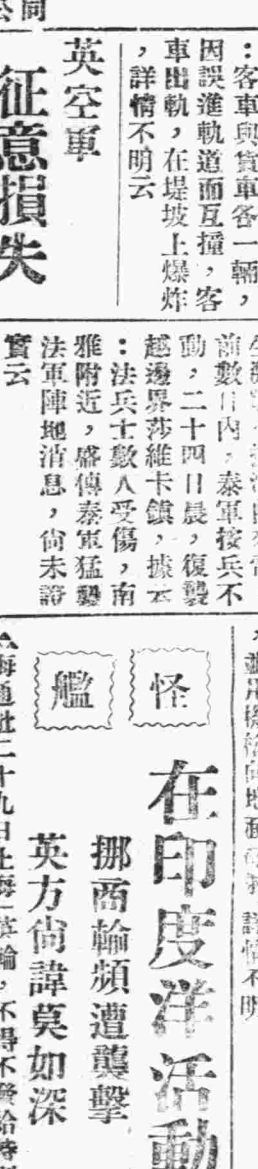 ：客車與貨車各一輛，
因誤進軌道而互撞，客
車出軌，在堤坡上爆炸
，詳情不明云
英空軍
征意損失
前數日內，泰軍按兵不
動，二十四日晨，復襲
越邊界莎維卡鎮，據云
：法兵士數人受傷，南
雅附近，盛傳泰軍猛襲
法軍陣地消息，尙未證
實云
怪艦
在印度洋活動
挪商輪頻遭襲擊
英方尙諱莫如深
海通社二十九日上海